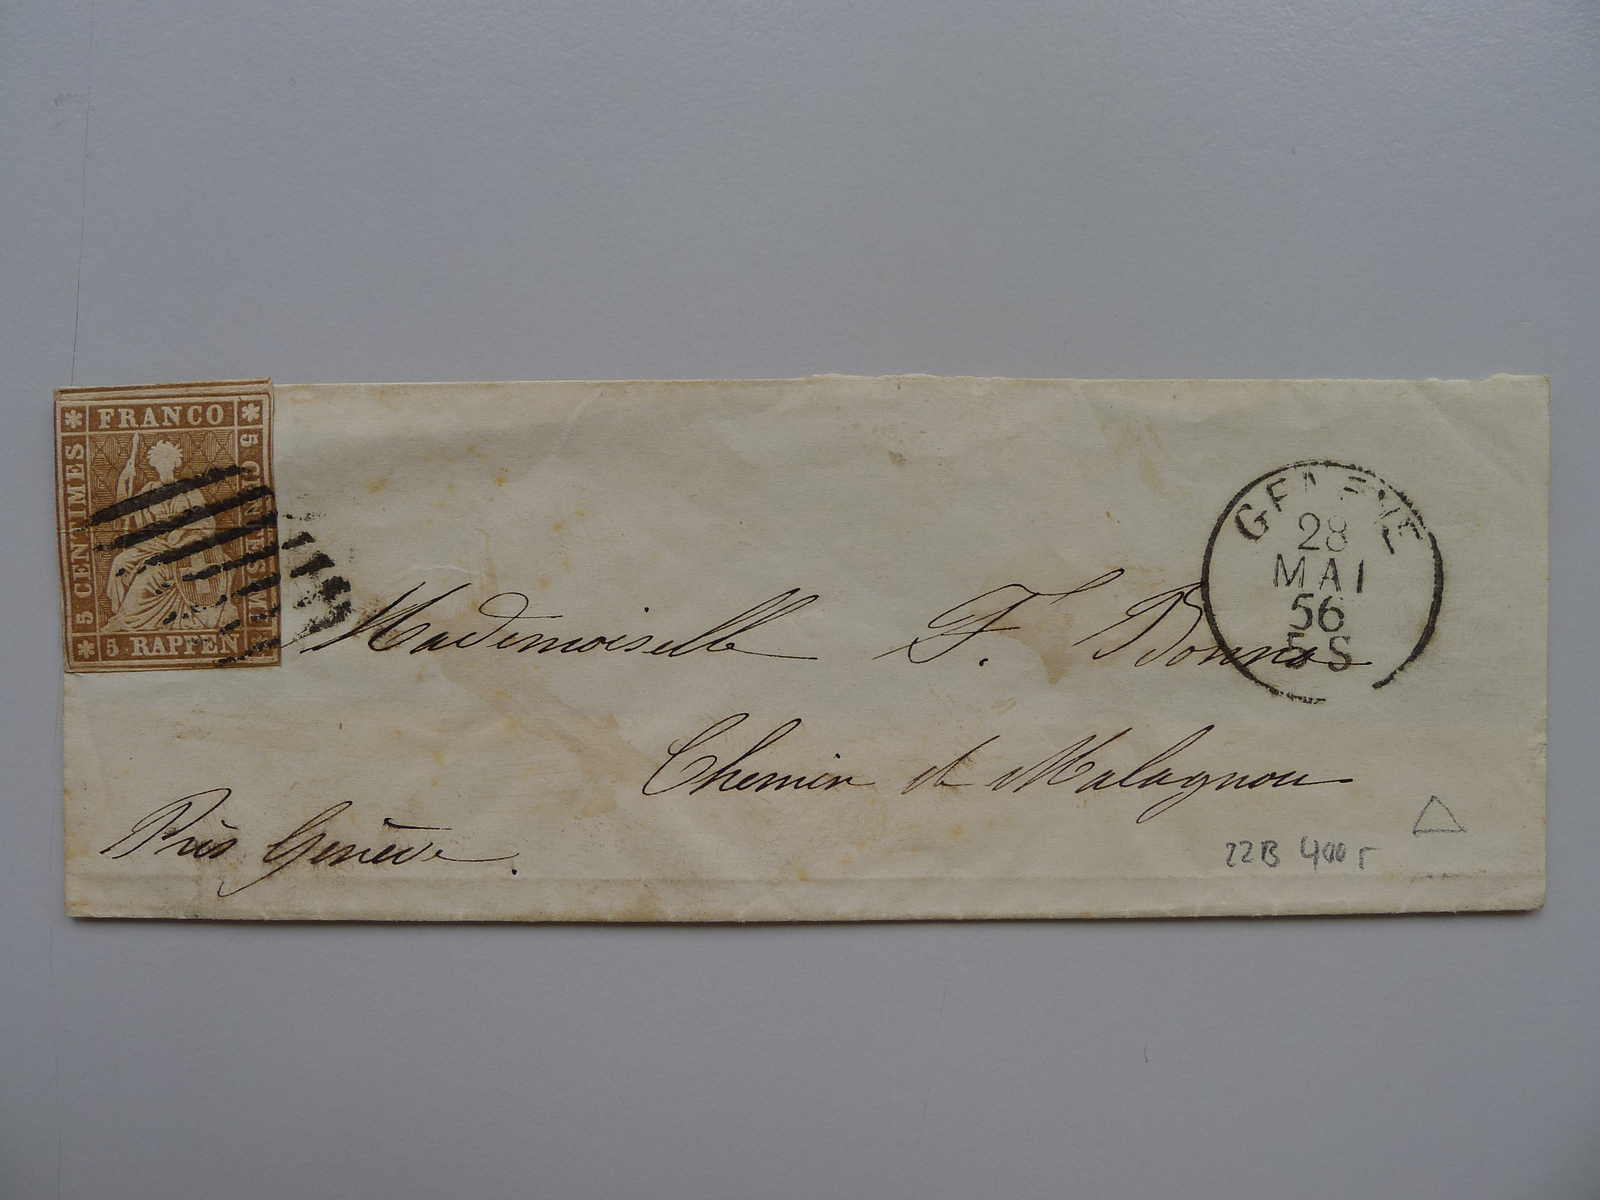 FRANCO
5 CENTIMES
5 CENTESIMI
5 RAPPEN
GENÈVE
28
MAI
56
5 S
Mademoiselle F. Bonna
Chemin de Malagnou
Près Genève.
22B 400